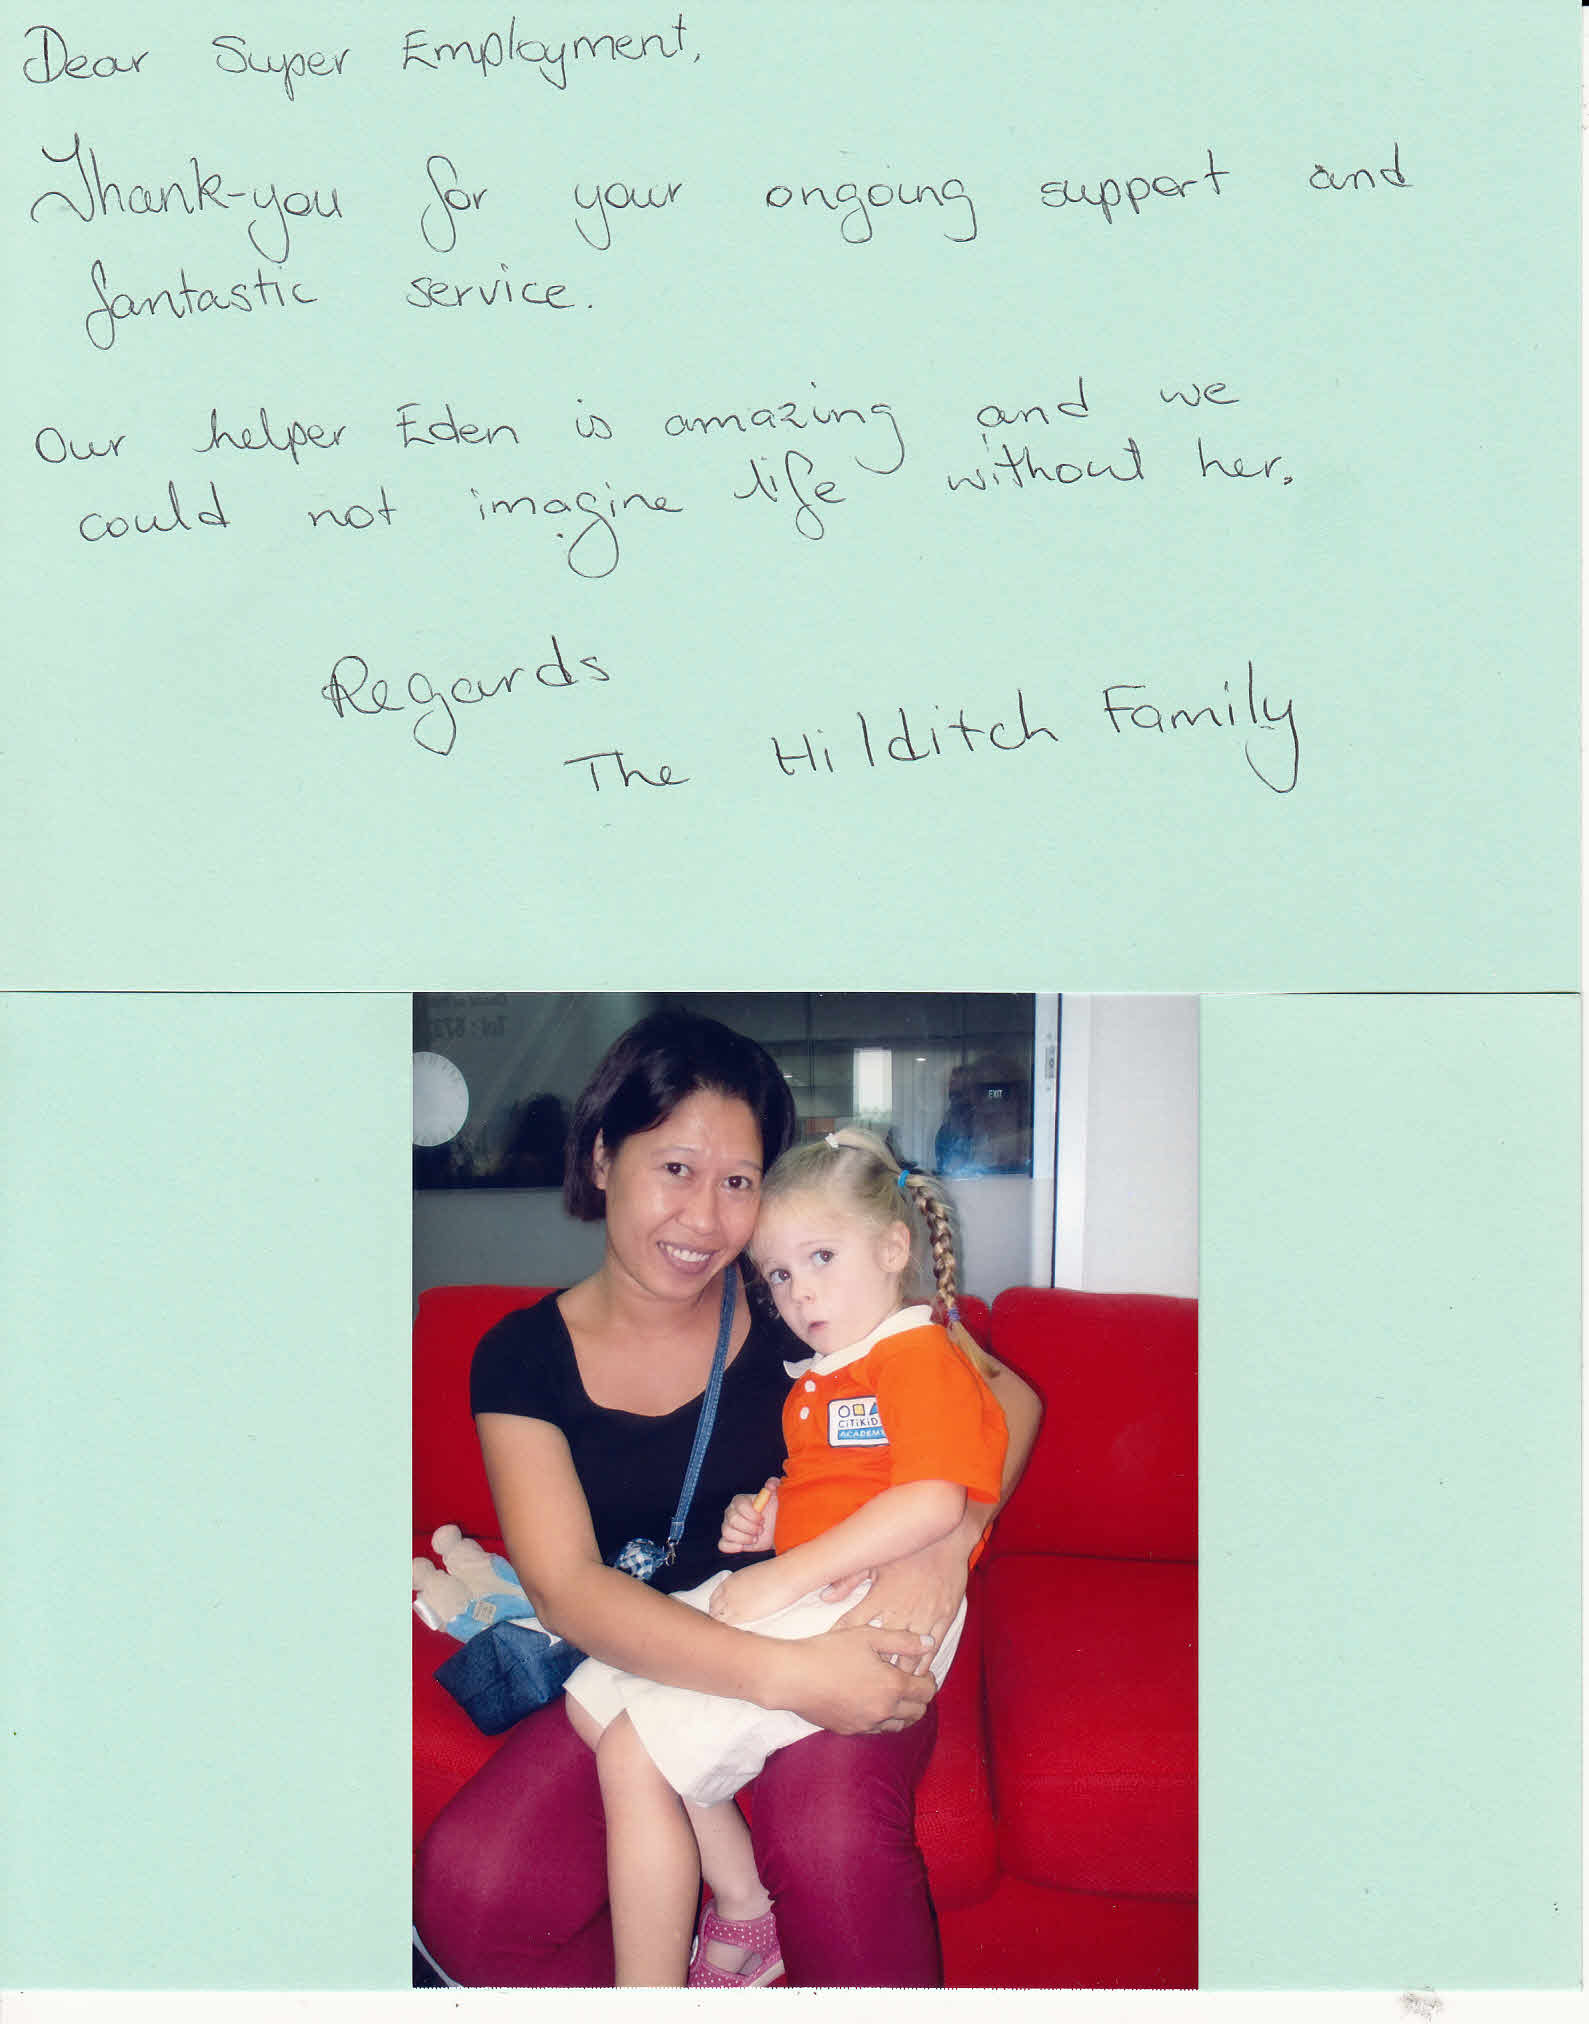 Dear Super Employment,
Thank-you for your ongoing support and
fantastic service.
Our helper Eden is amazing and we
could not imagine life without her.
Regards
The Hilditch Family
EXIT
CiTiKiD
ACADEM